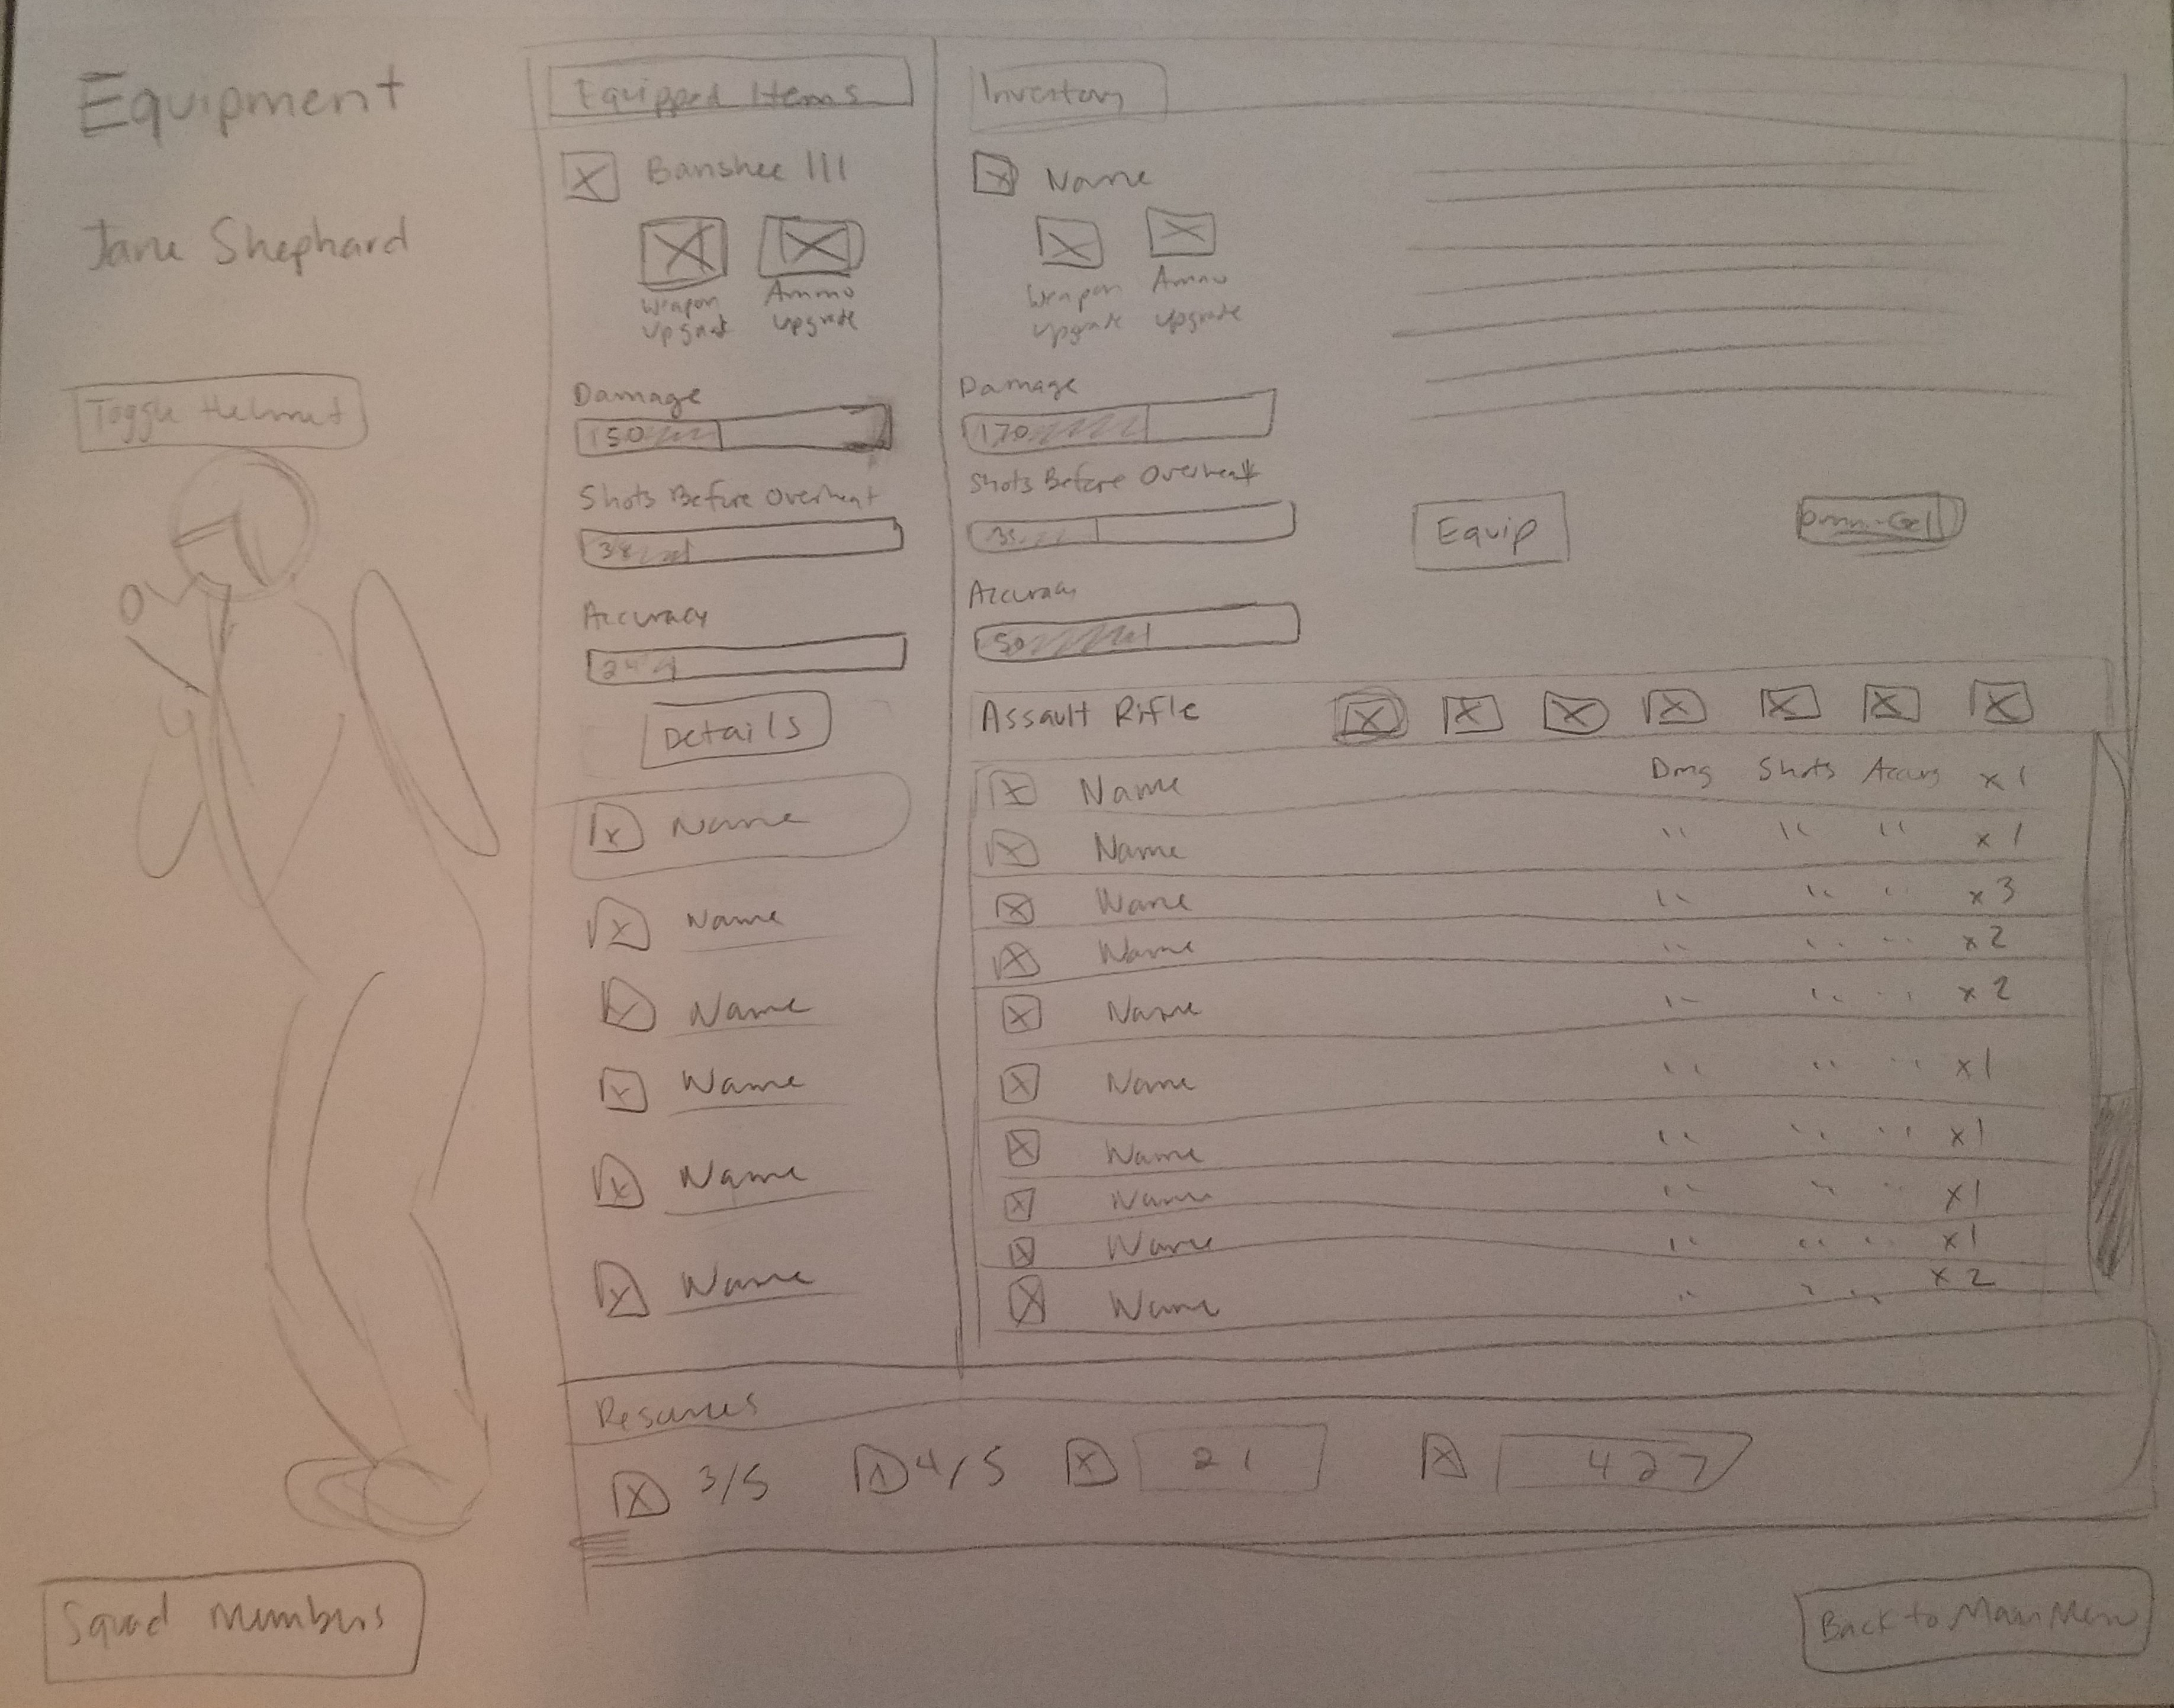 Equipment
Jane Shephard
Toggle Helmet
Squad Members
Equipped Items
Banshee III
Weapon
Upgrade
Ammo
Upgrade
Damage
150
Shots Before Overheat
38
Accuracy
Details
Name
Name
Name
Name
Name
Name
Inventory
Name
Weapon
Upgrade
Ammo
Upgrade
Damage
170
Shots Before Overheat
Accuracy
50
Equip
Assault Rifle
Name Dmg Shots Accury x1
Name " " " x1
Name " " " x3
Name " " " x2
Name " " " x2
Name " " " x1
Name " " " x1
Name " " " x1
Name " " " x1
Name " " " x2
Resources
3/5 4/5 21 427
Back to Main Menu